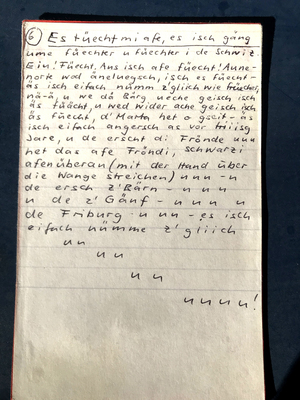 ⑥ Es tüecht mi afe, es isch gäng
ume füechter u füechter i de Schwiz.
Ein! Füecht. Aus isch afe füecht! Aune-
norte wod äneluegsch, isch es füecht-
äs isch eifach nümm z'glich wie früecher,
nä-ä, u we dä Bärg ueche geisch isch
äs füächt, u wed wider ache geisch isch
äs füecht, d'Marta het o gseit - äs
isch eifach angersch as vor triiisg
Jare, u de erscht di Frönde uuu
het das afe Fröndi, schwarzi
afenüberau (mit der Hand über
die Wange streichen) uuu - u
de ersch z'Bärn - u u u
u de z'Gänf - u u u u
de Friburg - u u u - es isch
eifach nümme z'gliich
u u
u u
u u
u u u u!